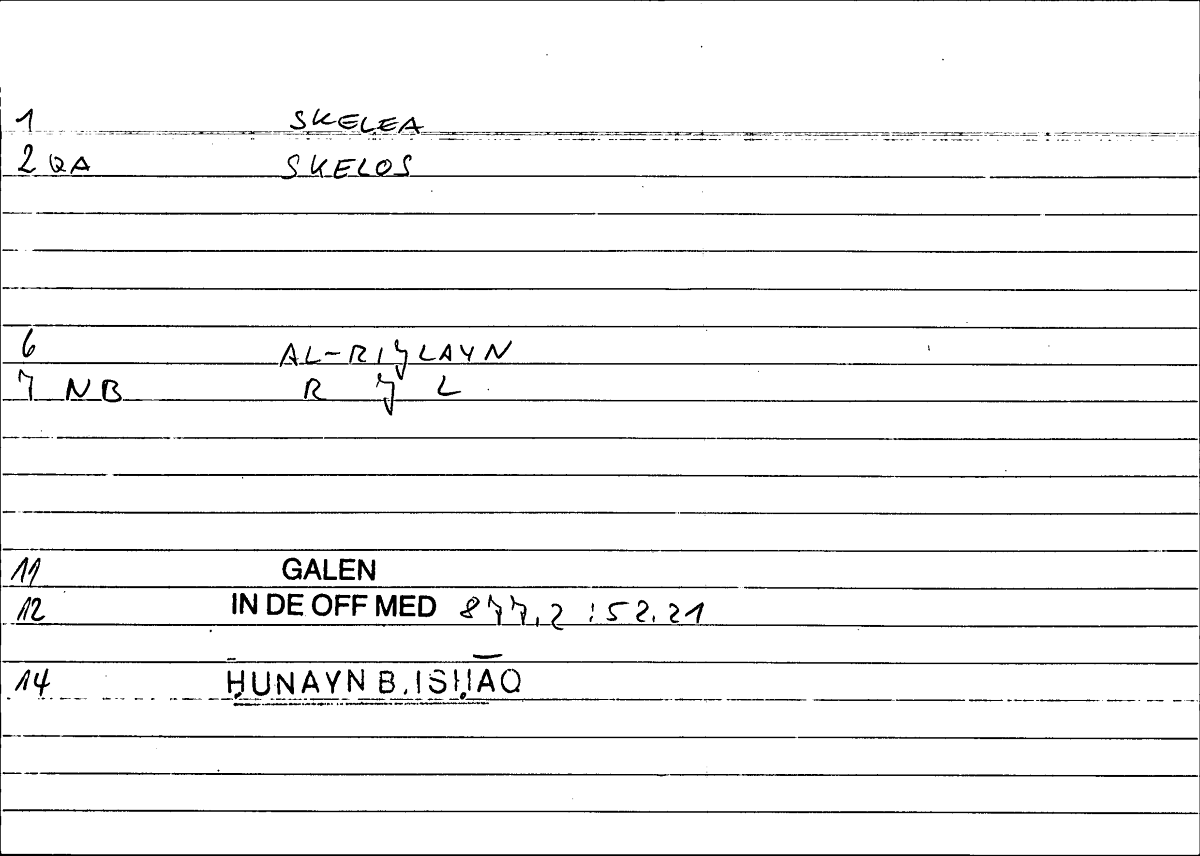 1 SKELEA
2 QA SKELOS
6 AL-RIJLAYN
7 NB R J L
11 GALEN
12 IN DE OFF MED 877,2 : 52.21
14 ḤUNAYN B. ISḤĀQ